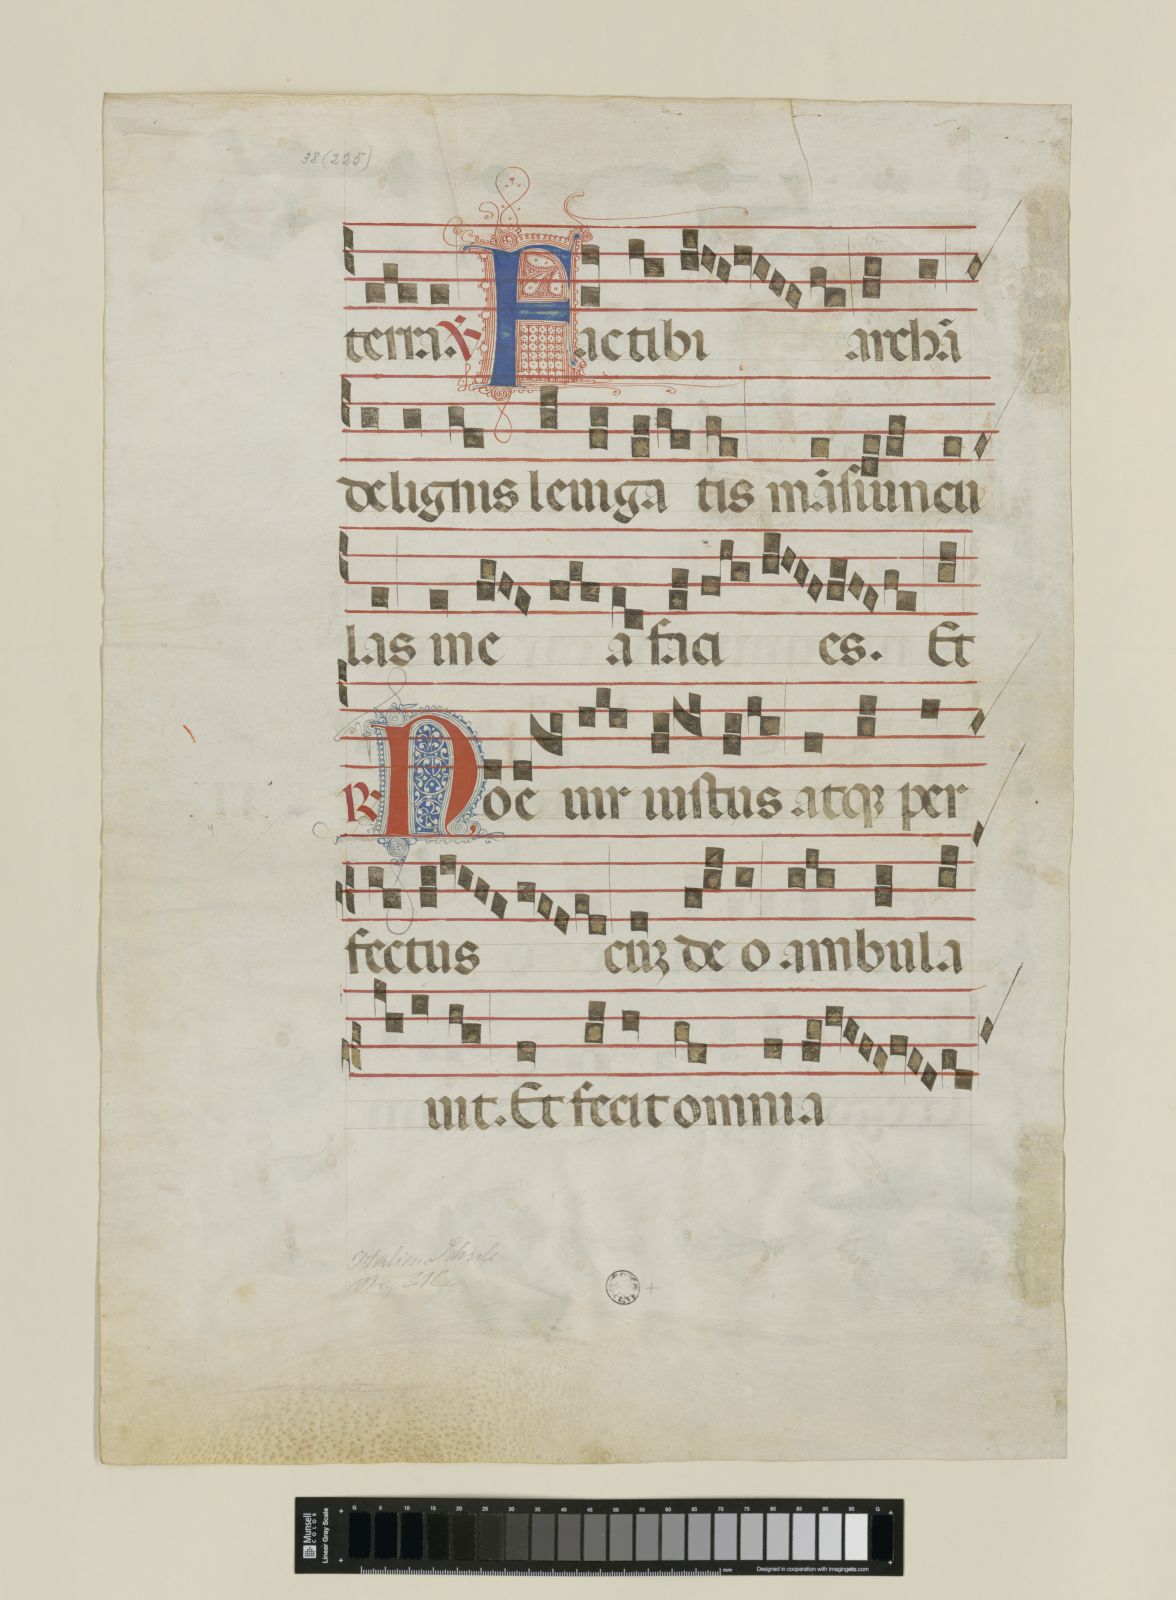 38 (225)
terra. V. Fac tibi archā
de lignis leuiga tis māsiuncu
las in e a faci es. Et
R. Noe uir iustus atqȝ per
fectus cuȝ deo ambula
uit. Et fecit omnia
Italien. Schule
Munsell
COLOR
Linear Gray Scale
G 5 10 15 20 25 30 35 40 45 50 55 60 65 70 75 80 85 90 95 G
mm
Designed in cooperation with imagingetc.com